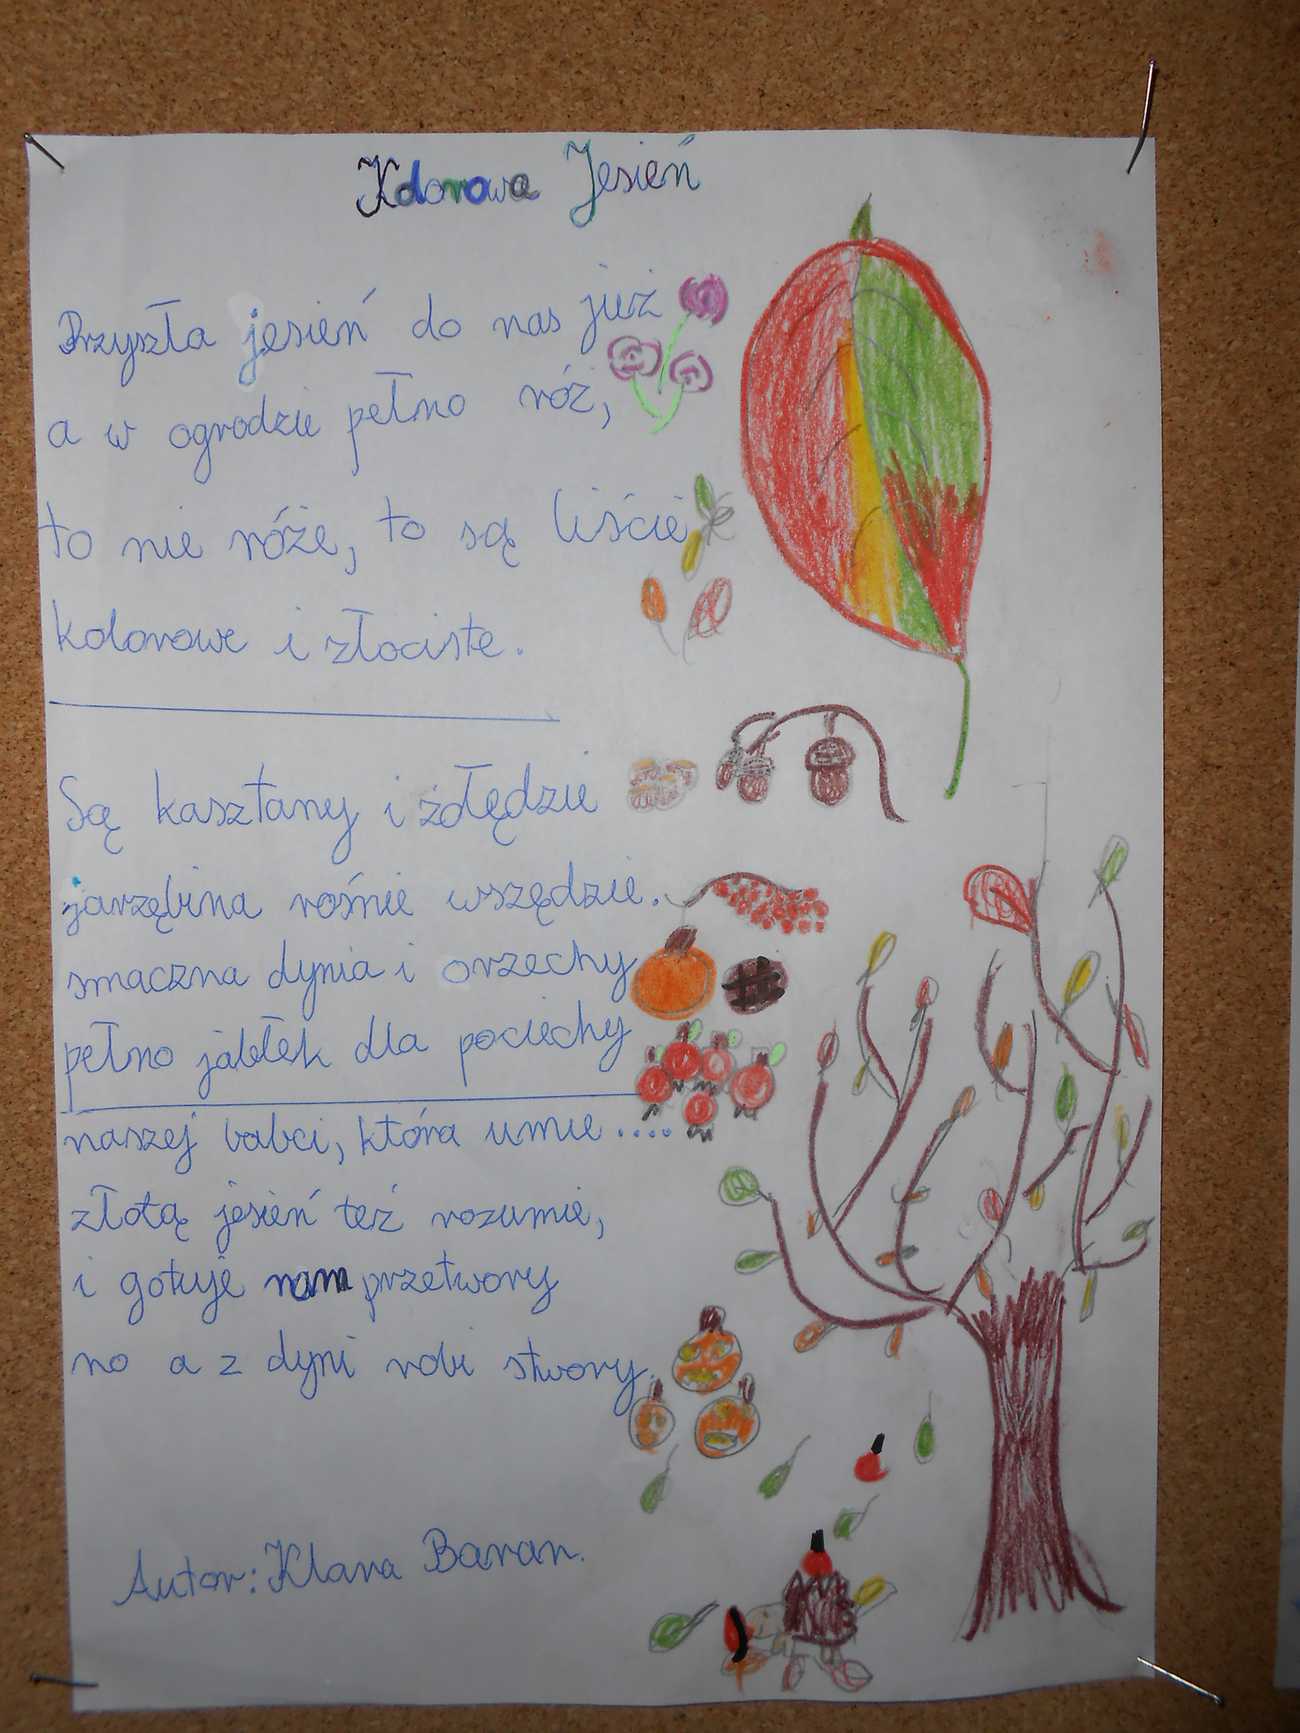 Kolorowa Jesień
Przyszła jesień do nas już
a w ogrodzie pełno róż,
to nie róże, to są liście
kolorowe i złociste.
Są kasztany i żołędzie
jarzębina rośnie wszędzie.
smaczna dynia i orzechy
pełno jabłek dla pociechy
naszej babci, która umie....
złotą jesień też rozumie,
i gotuje nam przetwory
no a z dyni robi stwory.
Autor: Klara Baran.